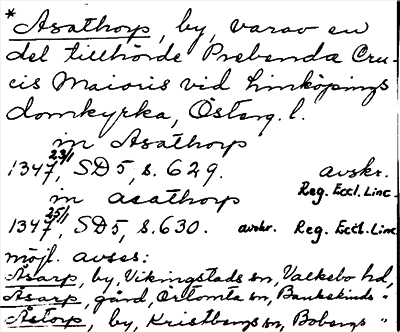 * Asathorp, by, varav en
del tillhörde Prebenda Cru-
cis Maioris vid Linköpings
domkyrka, Österg. l.
in Asathorp
1347 23/1, SD 5, s. 629. avskr.
Reg. Eccl. Linc.
in asathorp
1347 25/1, SD 5, s. 630. avskr. Reg. Eccl. Linc.
möjl. avses:
Åsarp, by, Vikingstads sn, Valkebo hd,
Åsarp, gård, Örtomta sn, Bankekinds "
Åstorp, by, Kristbergs sn, Bobergs "